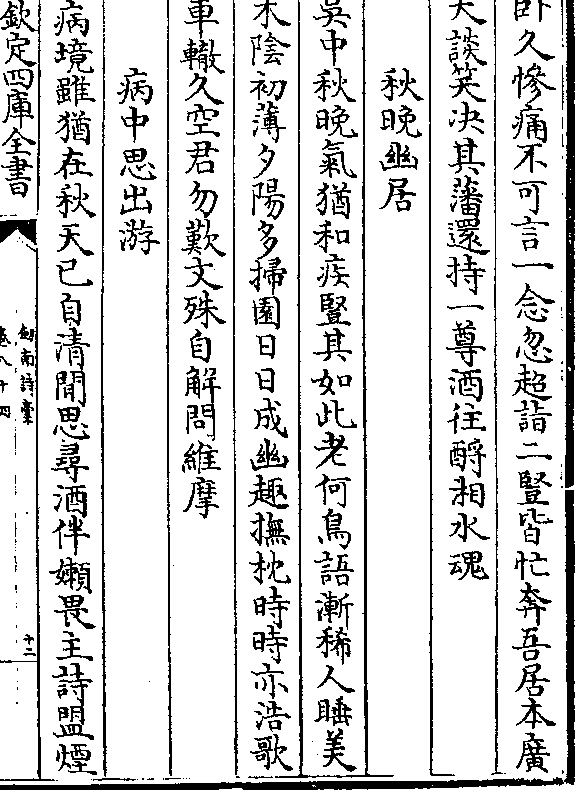 卧久慘痛不可言一念忽超詣二豎皆忙奔吾居本廣
大談笑决其藩還持一尊酒往酹湘水魂
秋晚幽居
吳中秋晚氣猶和疾豎其如此老何鳥語漸稀人睡美
木陰初薄夕陽多掃園日日成幽趣撫枕時時亦浩歌
車轍久空君勿歎文殊自解問維摩
病中思出游
病境雖猶在秋天已自清閒思尋酒伴嬾畏主詩盟煙
欽定四庫全書
劍南詩稾
卷八十四
十二